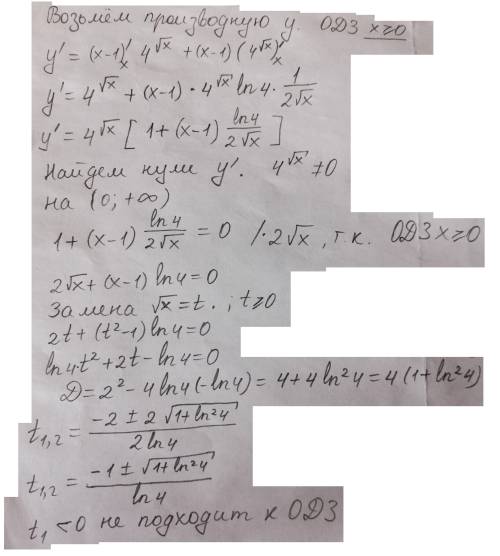 Возьмём производную y. ОДЗ x≥0
y' = (x-1)'ₓ 4^√x + (x-1)(4^√x)'ₓ
y' = 4^√x + (x-1)·4^√x ln4 · 1/(2√x)
y' = 4^√x [1 + (x-1) ln4/(2√x)]
Найдем нули y'. 4^√x ≠ 0
на (0; +∞)
1 + (x-1) ln4/(2√x) = 0 /·2√x, т.к. ОДЗ x≥0
2√x + (x-1) ln4 = 0
Замена √x = t. ; t≥0
2t + (t²-1) ln4 = 0
ln4·t² + 2t - ln4 = 0
D = 2² - 4ln4(-ln4) = 4 + 4ln²4 = 4(1+ln²4)
t₁,₂ = (-2 ± 2√(1+ln²4))/(2ln4)
t₁,₂ = (-1 ± √(1+ln²4))/ln4
t₁ < 0 не подходит к ОДЗ